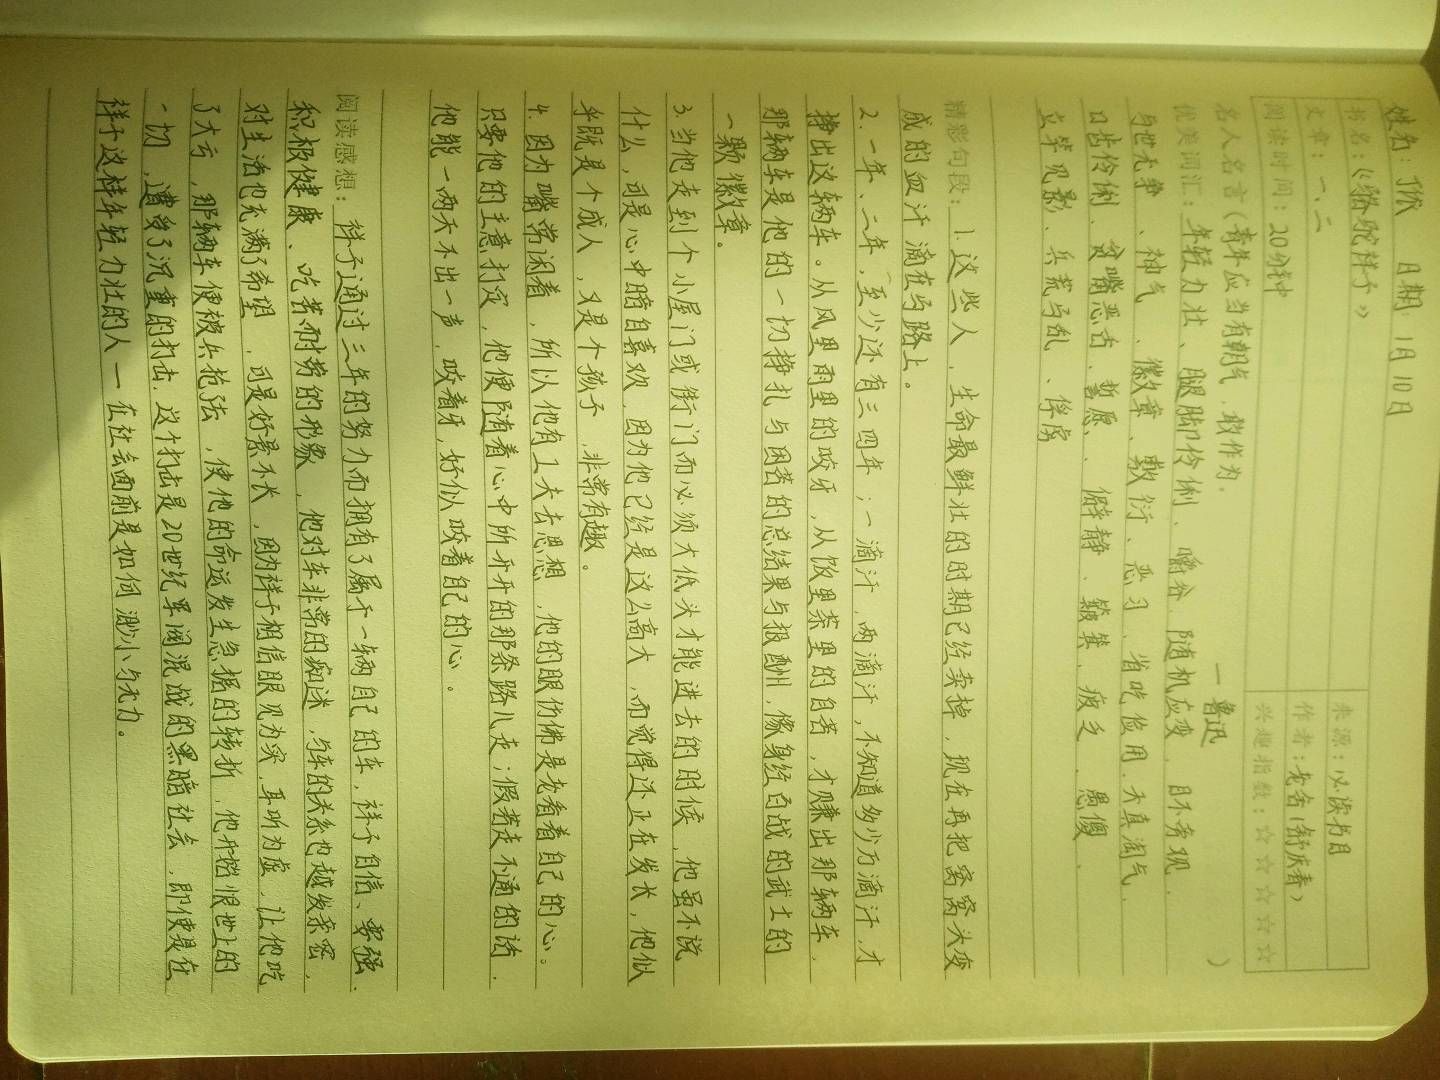 姓名：丁佩 日期：1月10日
书名：《骆驼祥子》 来源：必读书目
文章：一、二 作者：老舍（舒庆春）
阅读时间：20分钟 兴趣指数：☆☆☆☆☆
名人名言（青年应当有朝气，敢作为。
—鲁迅 ）
优美词汇：年轻力壮、腿脚伶俐、嚼谷、随机应变、目不旁视、
与世无争、神气、徽章、敷衍、恶习、省吃俭用、天真淘气、
口齿伶俐、贫嘴恶舌、誓愿、僻静、簸箕、疲乏、愚傻、
立竿见影、兵荒马乱、俘虏
精彩句段：1.这些人，生命最鲜壮的时期已经卖掉，现在再把窝窝头变
成的血汗滴在马路上。
2.一年、二年，至少还有三四年；一滴汗，两滴汗，不知道多少万滴汗，才
挣出这辆车。从风里雨里的咬牙，从饭里茶里的自苦，才赚出那辆车，
那辆车是他的一切挣扎与困苦的总结果与报酬，像身经百战的武士的
一颗徽章。
3.当他走到个小屋门或街门而必须大低头才能进去的时候，他虽不说
什么，可是心中暗自喜欢，因为他已经是这么高大，而觉得还正在发长，他似
乎既是个成人，又是个孩子，非常有趣。
4.因为嘴常闲着，所以他有工夫去思想，他的眼仿佛是老看着自己的心。
只要他的主意打定，他便随着心中所开开的那条路儿走；假若走不通的话，
他能一两天不出一声，咬着牙，好似咬着自己的心。
阅读感想：祥子通过三年的努力而拥有了属于一辆自己的车，祥子自信、要强、
积极健康、吃苦耐劳的形象，他对车非常的痴迷，与车的关系也越发亲密，
对生活也充满了希望，可是好景不长，因为祥子相信眼见为实，耳听为虚，让他吃
了大亏，那辆车便被兵抢去，使他的命运发生急据的转折，他开始恨世上的
一切，遭受了沉重的打击，这个打击是20世纪军阀混战的黑暗社会，即使是在
祥子这样年轻力壮的人—在社会面前是如何渺小与无力。